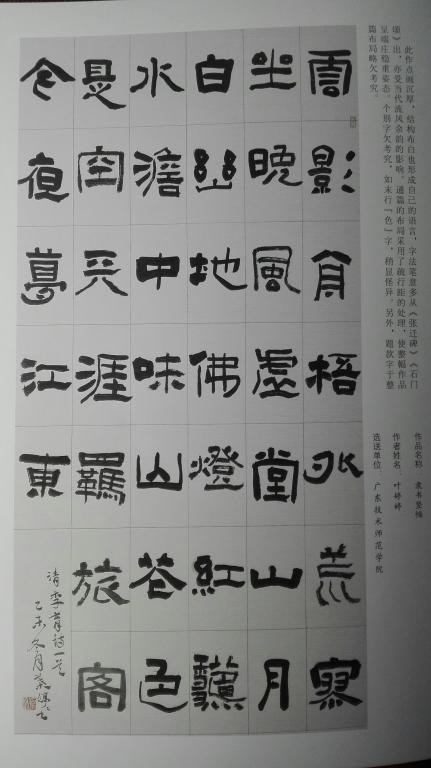 此作点画沉厚，结构布白也形成自己的语言，字法笔意多从《张迁碑》《石门
颂》出，亦受当代流风余韵的影响。通篇的布局采用了疏行距的处理，使整幅作品
呈端庄稳重姿态。个别字欠考究，如末行「色」字，稍显怪异。另外，题款字于整
篇布局略欠考究。
作品名称：隶书竖幅
作者姓名：叶婷婷
选送单位：广东技术师范学院
雲影梧荒寥
坐晚風虛堂山月
白幽地佛燈紅
水澹中味山花色
是空天涯羈旅客
今夜夢江東
清李育詩一首
乙未冬月